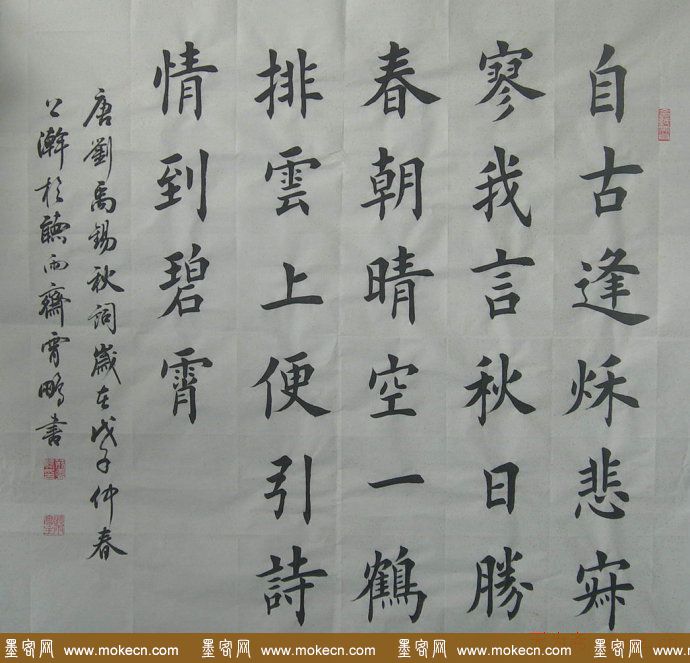 自古逢秌悲寂
寥我言秋日勝
春朝晴空一鶴
排雲上便引詩
情到碧霄
唐劉禹錫秋詞歲在戊子仲春
瀚於聽雨齋霄鵬書
墨客网 www.mokecn.com 墨客网 www.mokecn.com 墨客网 www.mokecn.com 墨客网 www.mokecn.com